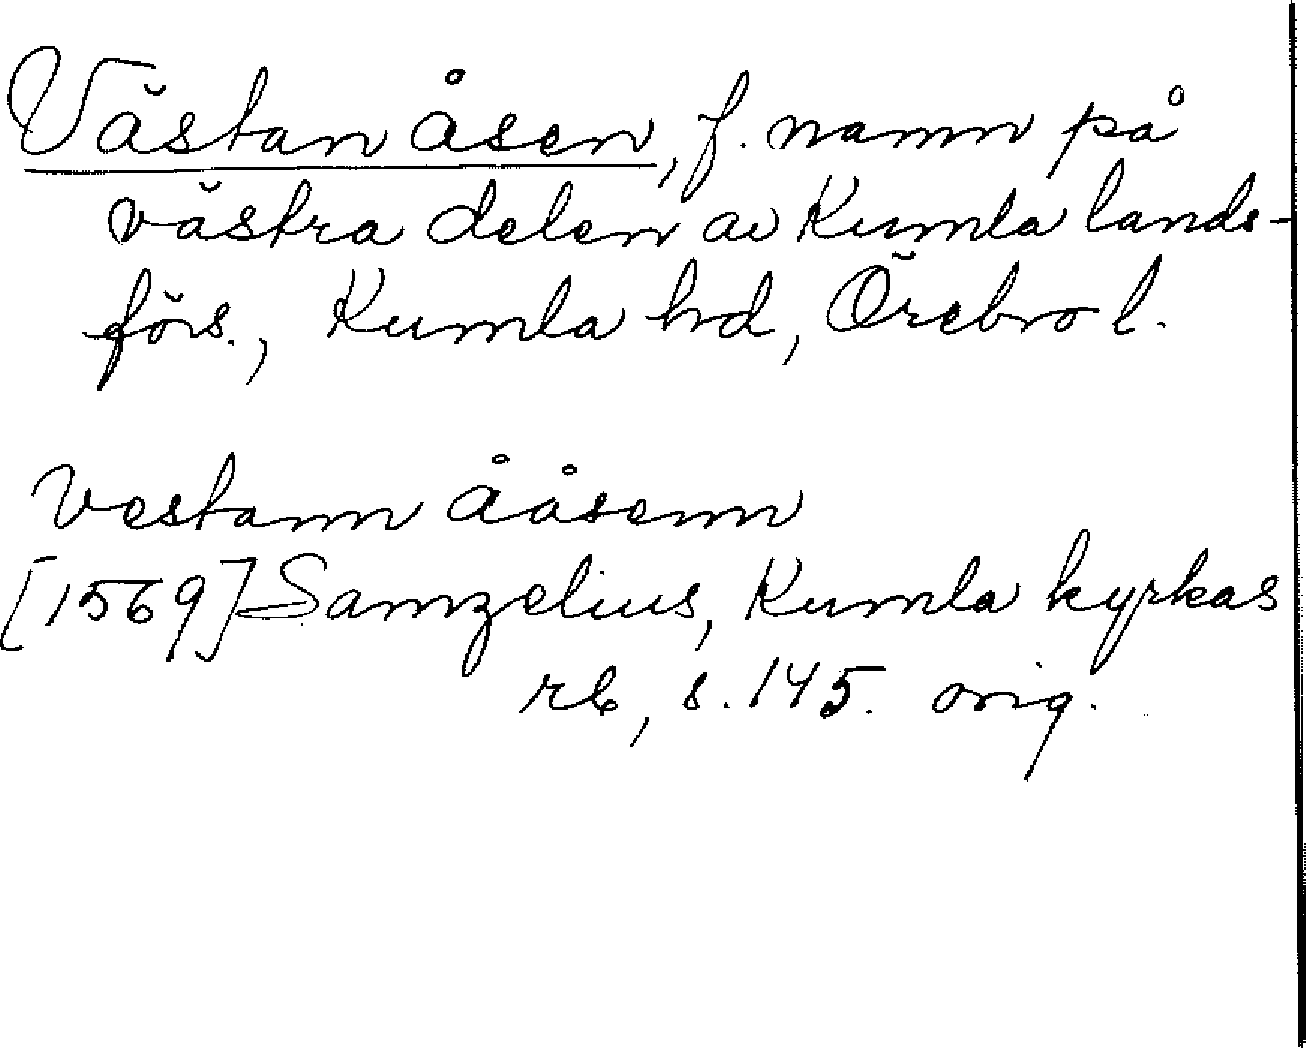 Västan åsen, f. namn på
västra delen av Kumla lands-
förs., Kumla hd, Örebro l.
Vestann Ååsenn
[1569] Samzelius, Kumla kyrkas
rb, s. 145. orig.